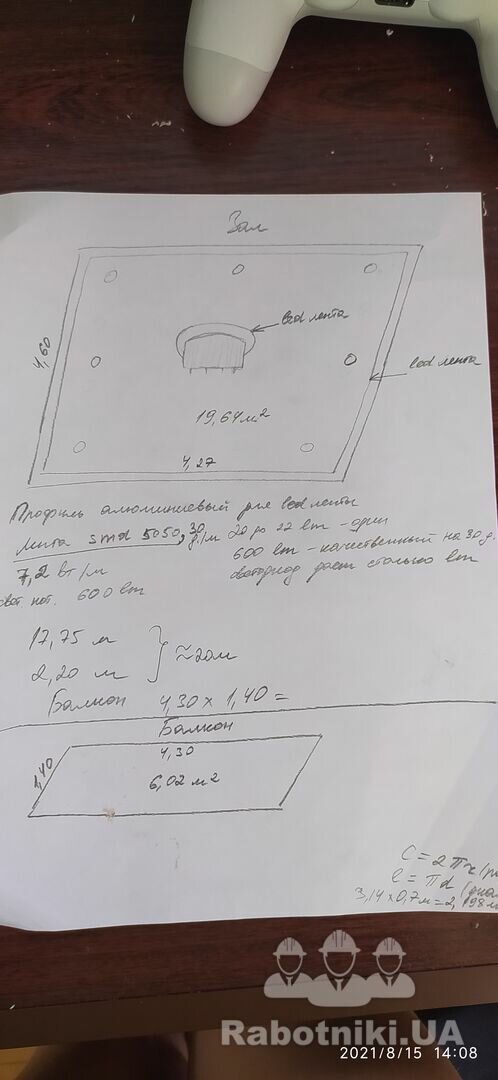 Зал
led лента
led лента
4,60
19,64 м²
4,27
Профиль алюминиевый для led ленты
Лента smd 5050, 30 д./м 20 до 22 lm - один
7,2 вт/м 600 lm - качественный на 30 д.
свет. пот. 600 lm светодиод дает столько lm
17,75 м
2,20 м } ≈ 20м
Балкон 4,30 x 1,40 =
Балкон
4,30
1,40
6,02 м²
C = 2πr
l = πd
3,14 x 0,7м = 2,198м
Rabotniki.UA
2021/8/15 14:08